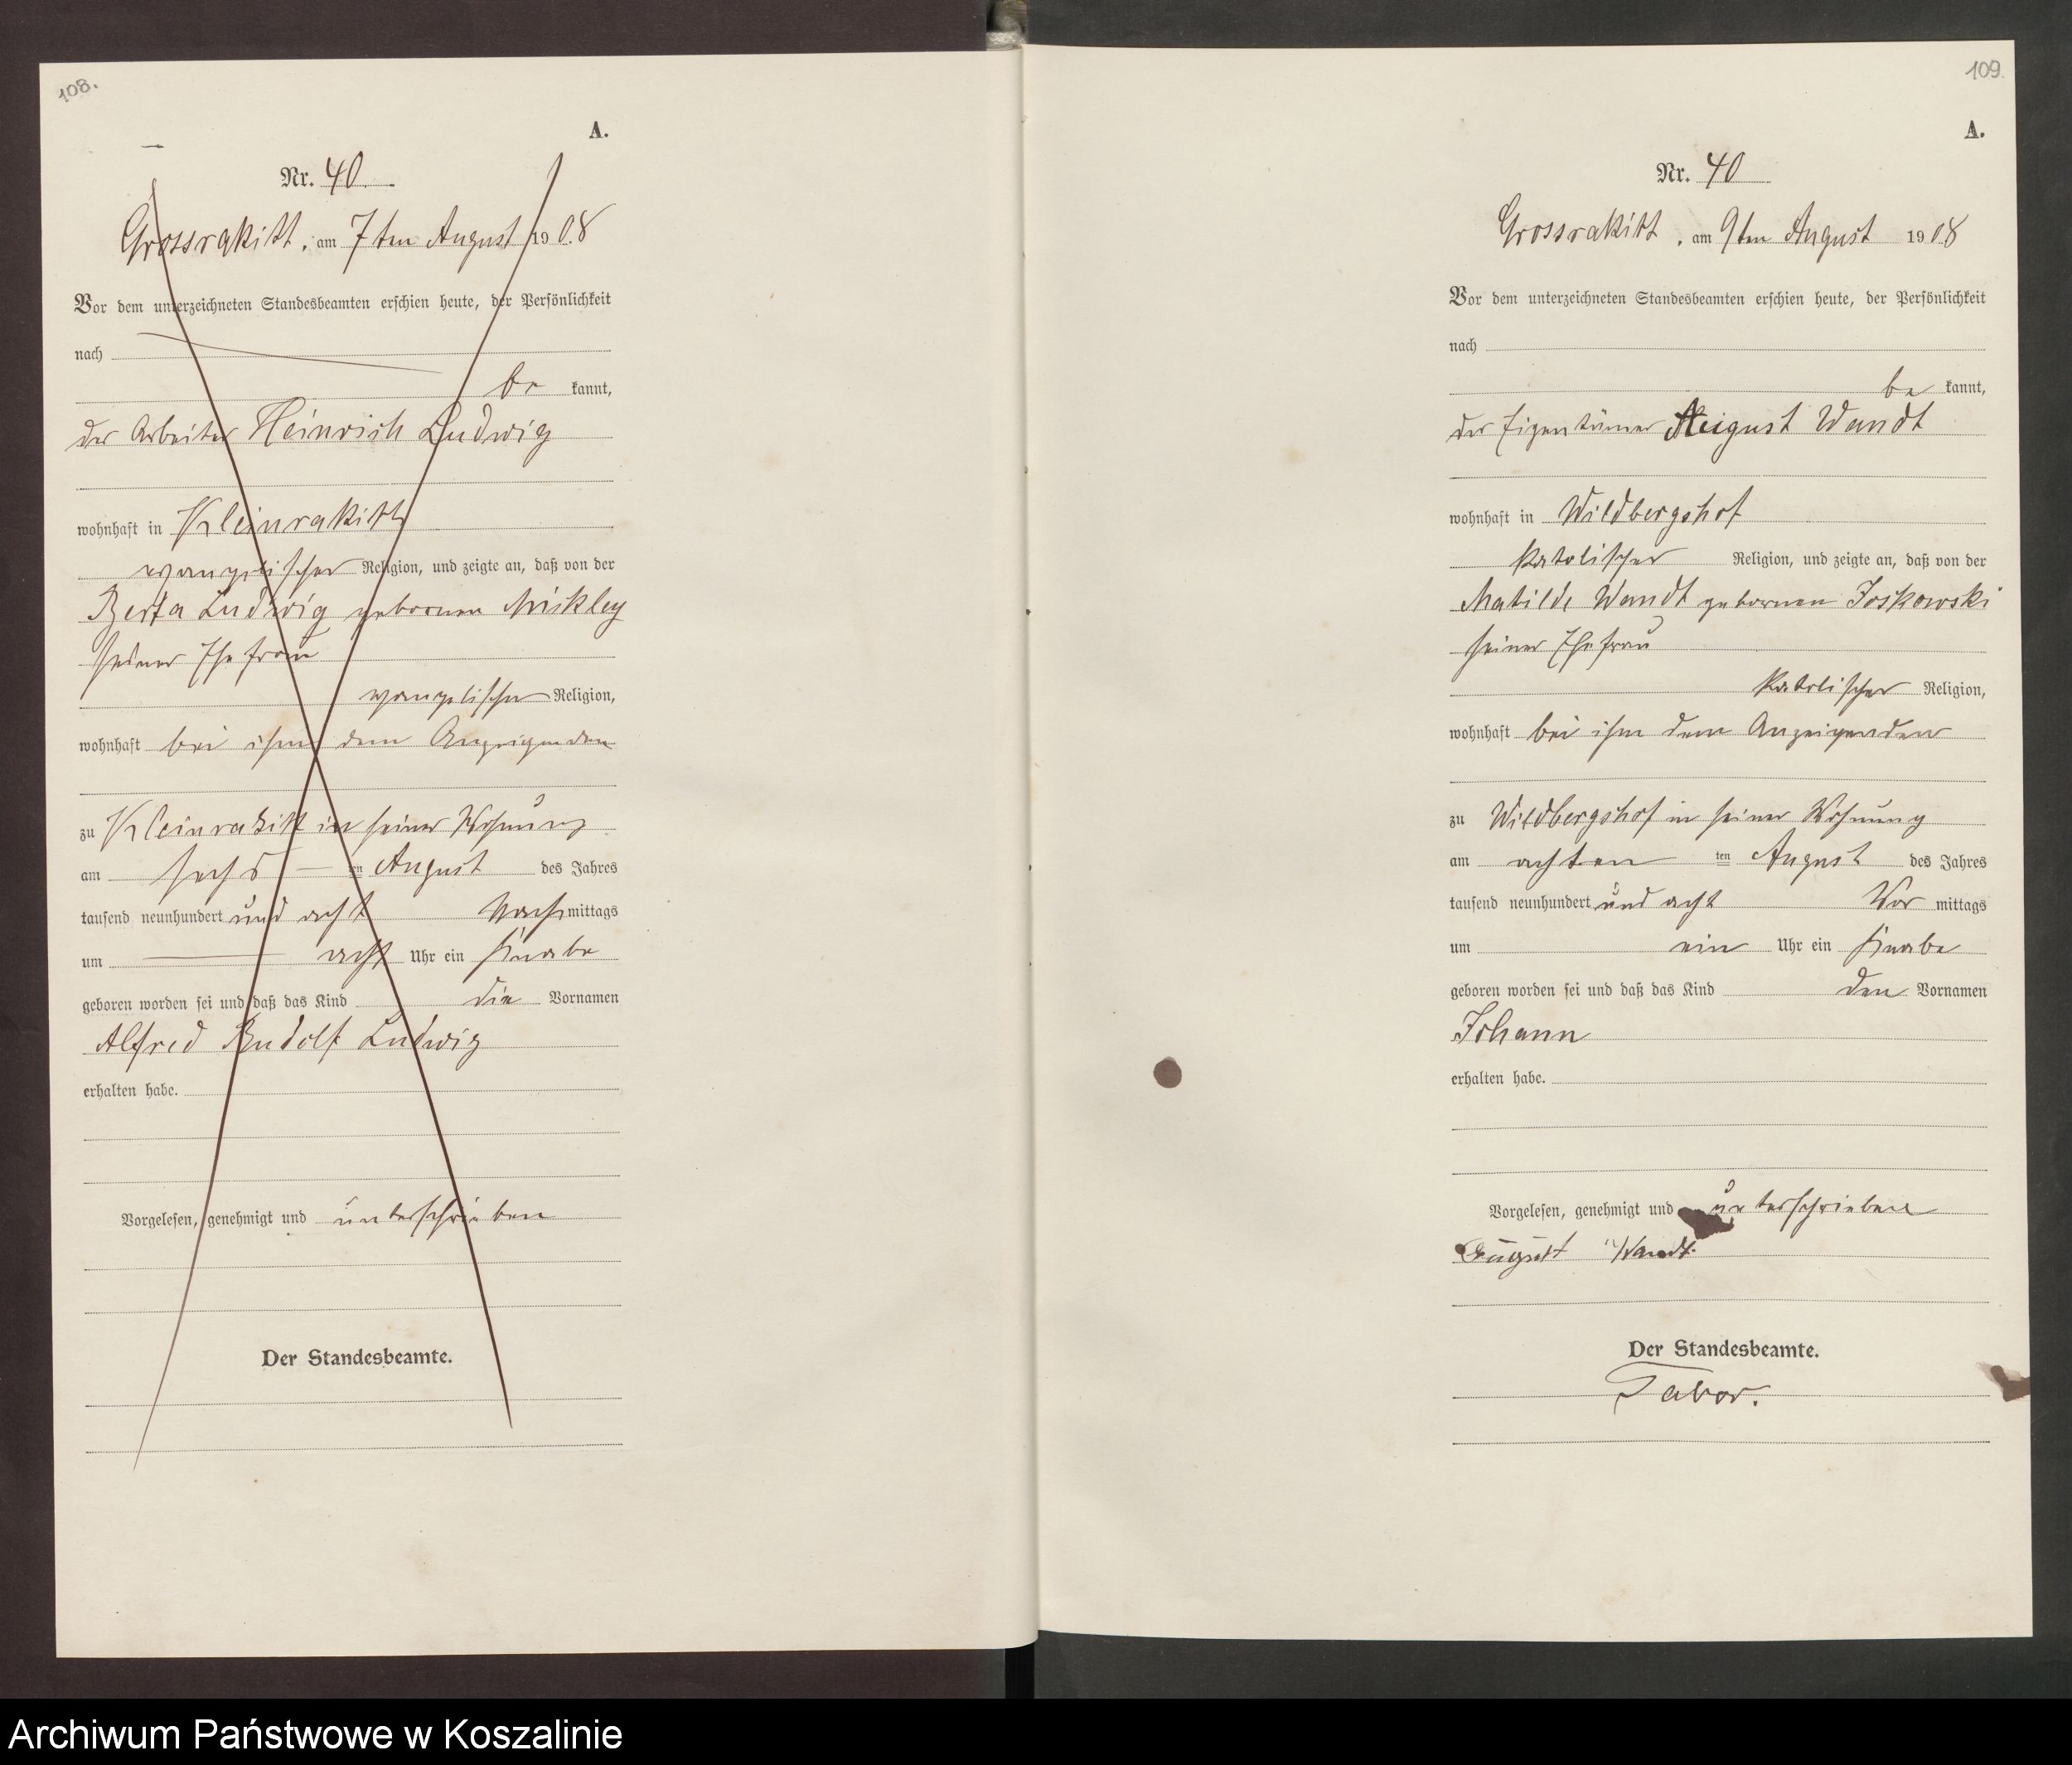 108.
A.
Nr. 40
Grossrakitt, am 7ten August 1908
Vor dem unterzeichneten Standesbeamten erschien heute, der Persönlichkeit
nach
be kannt,
der Arbeiter Heinrich Ludwig
wohnhaft in Kleinrakitt
evangelischer Religion, und zeigte an, daß von der
Berta Ludwig geborenen Mickley
seiner Ehefrau
evangelischer Religion,
wohnhaft bei ihm dem Anzeigenden
zu Kleinrakitt in seiner Wohnung
am sechs ten August des Jahres
tausend neunhundert und acht Nachmittags
um acht Uhr ein Knabe
geboren worden sei und daß das Kind die Vornamen
Alfred Rudolf Ludwig
erhalten habe.
Vorgelesen, genehmigt und unterschrieben
Der Standesbeamte.
109.
A.
Nr. 40
Grossrakitt, am 9ten August 1908
Vor dem unterzeichneten Standesbeamten erschien heute, der Persönlichkeit
nach
be kannt,
der Eigentümer August Wandt
wohnhaft in Wildbergshof
katolischer Religion, und zeigte an, daß von der
Matilde Wandt gebornen Joskowski
seiner Ehefrau
katolischer Religion,
wohnhaft bei ihm dem Anzeigenden
zu Wildbergshof in seiner Wohnung
am achten ten August des Jahres
tausend neunhundert und acht Vor mittags
um ein Uhr ein Knabe
geboren worden sei und daß das Kind den Vornamen
Johann
erhalten habe.
Vorgelesen, genehmigt und unterschrieben
August Wandt.
Der Standesbeamte.
Tabor.
Archiwum Państwowe w Koszalinie